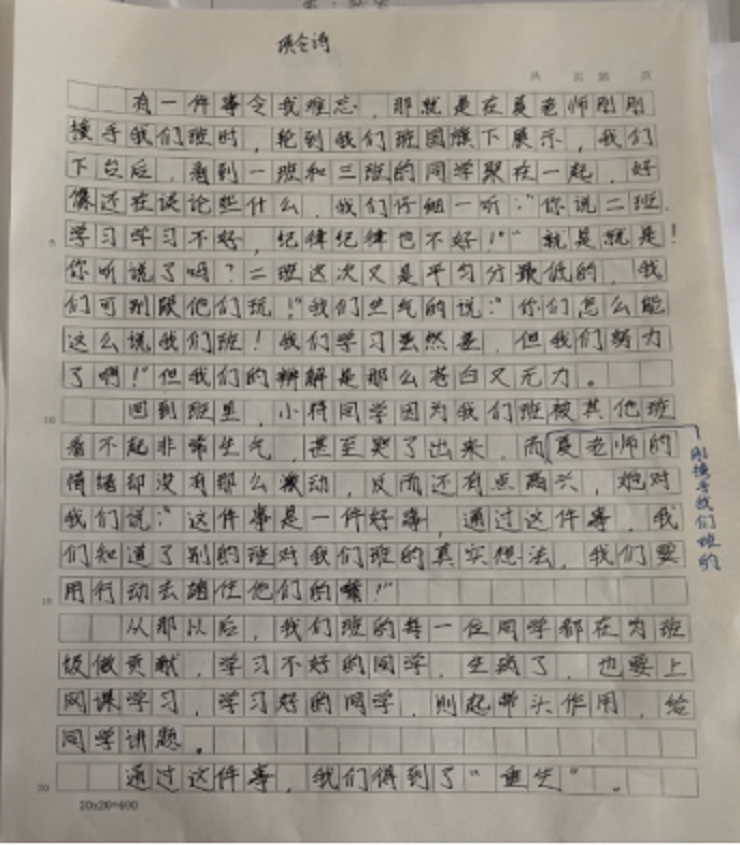 共 页 第 页
有一件事令我难忘，那就是在夏老师刚刚
接手我们班时，轮到我们班国旗下展示，我们
下台后，看到一班和三班的同学聚在一起，好
像还在谈论些什么，我们仔细一听："你说二班，
5 学习学习不好，纪律纪律也不好！""就是就是！
你听说了吗？二班这次又是平均分最低的，我
们可别跟他们玩！"我们生气的说："你们怎么能
这么说我们班！我们学习虽然差，但我们努力
了啊！"但我们的辩解是那么苍白又无力。
10 回到班里，小符同学因为我们班被其他班
看不起非常生气，甚至哭了出来，而夏老师的
刚接手我们班的
情绪却没有那么激动，反而还有点高兴，她对
我们说："这件事是一件好事，通过这件事，我
们知道了别的班对我们班的真实想法，我们要
15 用行动去堵住他们的嘴！"
从那以后，我们班的每一位同学都在为班
级做贡献，学习不好的同学，生病了，也要上
网课学习，学习好的同学，则起带头作用，给
同学讲题。
20 通过这件事，我们得到了"重生"。
20x20=400